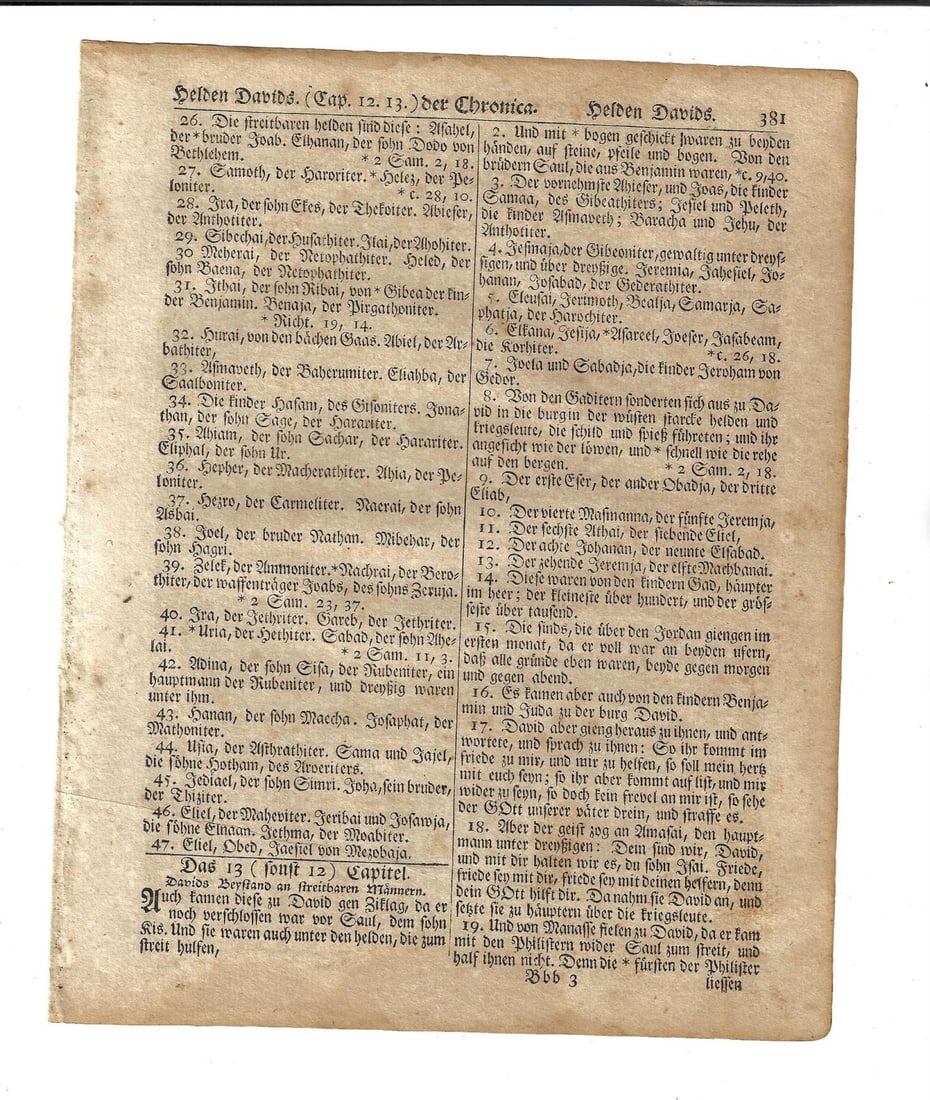 Helden Davids. (Cap. 12. 13.) der Chronica. Helden Davids. 381
26. Die streitbaren helden sind diese: Asahel,
der * bruder Joab. Elhanan, der sohn Dodo von
Bethlehem. * 2 Sam. 2, 18.
27. Samoth, der Haroriter. * Helez, der Pe-
loniter. * c. 28, 10.
28. Ira, der sohn Ekes, der Thekoiter. Abieser,
der Anthotiter.
29. Sibechai, der Husathiter. Ilai, der Ahohiter.
30 Meherai, der Netophathiter. Heled, der
sohn Baena, der Netophathiter.
31. Ithai, der sohn Ribai, von * Gibea der kin-
der Benjamin. Benaja, der Pirgathoniter.
* Richt. 19, 14.
32. Hurai, von den bächen Gaas. Abiel, der Ar-
bathiter,
33. Asmaveth, der Baherumiter. Eliahba, der
Saalboniter.
34. Die kinder Hasam, des Gisoniters. Jona-
than, der sohn Sage, der Harariter.
35. Ahiam, der sohn Sachar, der Harariter.
Eliphal, der sohn Ur.
36. Hepher, der Macherathiter. Ahia, der Pe-
loniter.
37. Hezro, der Carmeliter. Naerai, der sohn
Asbai.
38. Joel, der bruder Nathan. Mibehar, der
sohn Hagri.
39. Zelek, der Ammoniter. * Nachrai, der Bero-
thiter, der waffenträger Joabs, des sohns Zeruja.
* 2 Sam. 23, 37.
40. Ira, der Jethriter. Gareb, der Jethriter.
41. * Uria, der Hethiter. Sabad, der sohn Ahe-
lai. * 2 Sam. 11, 3.
42. Adina, der sohn Sisa, der Rubeniter, ein
hauptmann der Rubeniter, und dreyßig waren
unter ihm.
43. Hanan, der sohn Maecha. Josaphat, der
Mathoniter.
44. Usia, der Asthrathiter. Sama und Jajel,
die söhne Hotham, des Aroeriters.
45. Jediael, der sohn Simri. Joha, sein bruder,
der Thiziter.
46. Eliel, der Maheviter. Jeribai und Josawja,
die söhne Elnaan. Jethma, der Moabiter.
47. Eliel, Obed, Jaesiel von Mezobaja.
Das 13 (sonst 12) Capitel.
Davids Beystand an streitbaren Männern.
Auch kamen diese zu David gen Ziklag, da er
noch verschlossen war vor Saul, dem sohn
Kis. Und sie waren auch unter den helden, die zum
streit hulfen,
2. Und mit * bogen geschickt waren zu beyden
händen, auf steine, pfeile und bogen. Von den
brüdern Saul, die aus Benjamin waren, * c. 9, 40.
3. Der vornehmste Ahieser, und Joas, die kinder
Samaa, des Gibeathiters; Jesiel und Peleth,
die kinder Asmaveth; Baracha und Jehu, der
Anthotiter.
4. Jesmaja, der Gibeoniter, gewaltig unter dreys-
sigen, und über dreyßige. Jeremia, Jahesiel, Jo-
hanan, Josabad, der Gederathiter.
5. Eleusai, Jerimoth, Bealja, Samarja, Sa-
phatja, der Harophiter.
6. Elkana, Jesija, * Asareel, Joeser, Jasabeam,
die Korhiter. * c. 26, 18.
7. Joela und Sabadja, die kinder Jeroham von
Gedor.
8. Von den Gaditern sonderten sich aus zu Da-
vid in die burg in der wüsten starcke helden und
kriegsleute, die schild und spieß führeten; und ihr
angesicht wie der löwen, und * schnell wie die rehe
auf den bergen. * 2 Sam. 2, 18.
9. Der erste Eser, der ander Obadja, der dritte
Eliab,
10. Der vierte Masmanna, der fünfte Jeremja,
11. Der sechste Athai, der siebende Eliel,
12. Der achte Johanan, der neunte Elsabad.
13. Der zehende Jeremja, der elfte Machbanai.
14. Diese waren von den kindern Gad, häupter
im heer; der kleineste über hundert, und der grös-
seste über tausend.
15. Die sinds, die über den Jordan giengen im
ersten monat, da er voll war an beyden ufern,
daß alle gründe eben waren, beyde gegen morgen
und gegen abend.
16. Es kamen aber auch von den kindern Benja-
min und Juda zu der burg David.
17. David aber gieng heraus zu ihnen, und ant-
wortete, und sprach zu ihnen: So ihr kommt im
friede zu mir, und mir zu helfen, so soll mein hertz
mit euch seyn; so ihr aber kommt auf list, und mir
wider zu seyn, so doch kein frevel an mir ist, so sehe
der GOtt unserer väter drein, und straffe es.
18. Aber der geist zog an Amasai, den haupt-
mann unter dreyßigen: Dein sind wir, David,
und mit dir halten wir es, du sohn Isai. Friede,
friede sey mit dir, friede sey mit deinen helfern, denn
dein GOtt hilft dir. Da nahm sie David an, und
setzte sie zu häuptern über die kriegsleute.
19. Und von Manasse fielen zu David, da er kam
mit den Philistern wider Saul zum streit, und
half ihnen nicht. Denn die * fürsten der Philister
Bbb 3 liessen